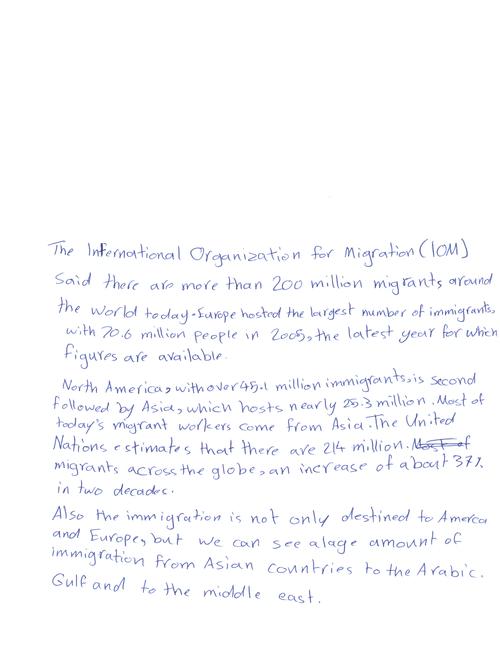 The International Organization for Migration (IOM)
said there are more than 200 million migrants around
the world today. Europe hosted the largest number of immigrants,
with 70.6 million people in 2005, the latest year for which
figures are available.
North America, with over 45.1 million immigrants, is second
followed by Asia, which hosts nearly 25.3 million. Most of
today's migrant workers come from Asia. The United
Nations estimates that there are 214 million. Most of
migrants across the globe, an increase of about 37%
in two decades.
Also the immigration is not only destined to Amerca
and Europe, but we can see alage amount of
immigration from Asian countries to the Arabic.
Gulf and to the middle east.